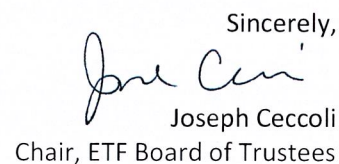 Sincerely,
Joseph Ceccoli
Chair, ETF Board of Trustees